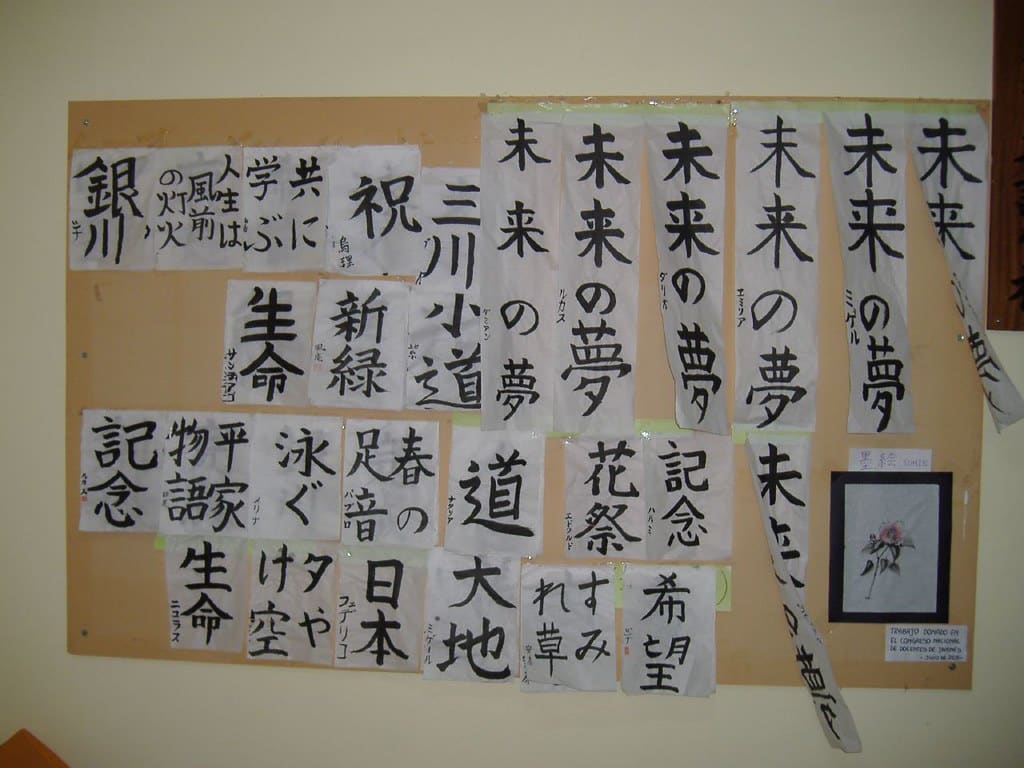 銀川
人生は
風前
の灯火
共に
学ぶ
祝
三川
未来の夢
ダミアン
未来の夢
ルカス
未来の夢
ダリオ
未来の夢
エミリア
未来の夢
ミゲル
未来の夢
生命
サンティアゴ
新緑
小道
記念
平家
物語
泳ぐ
メリナ
春の
足音
パブロ
道
ナタリア
花祭
エドワルド
記念
ハルミ
未来の夢
生命
ニコラス
夕や
け空
日本
フェデリコ
大地
ミゲール
すみ
れ草
希望
墨絵 SUMIE
TRABAJO DONADO EN
EL CONGRESO NACIONAL
DE DOCENTES DE JAPONÉS
- JULIO DE